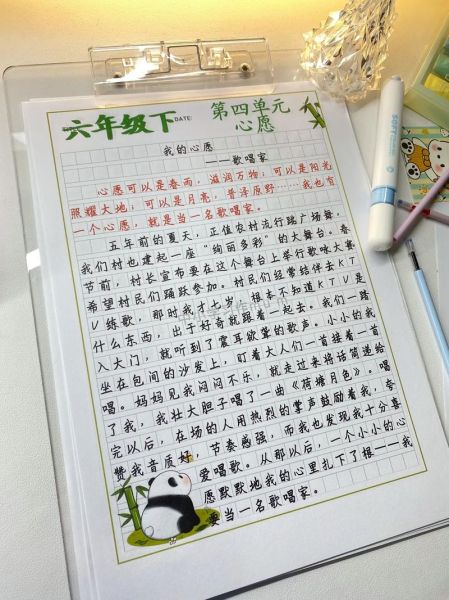 六年级下 DATE: 第四单元
心愿
我的心愿
——歌唱家
心愿可以是春雨，滋润万物，可以是阳光
照耀大地，可以是月亮，普泽原野……我也有
一个心愿，就是当一名歌唱家。
五年前的夏天，正值农村流行跳广场舞，
我们村也建起一座“绚丽多彩”的大舞台。春
节前，村长宣布要在这个舞台上举行歌咏大赛
希望村民们踊跃参加。村民们经常结伴去KT
V练歌，那时我才七岁，根本不知道KTV是
什么东西，出于好奇就跟着一起去。我们一踏
入大门，就听到了震耳欲聋的歌声。小小的我
坐在包间的沙发上，盯着大人们一首接着一首
唱。妈妈见我闷闷不乐，就走过来将话筒递给
了我，我壮大胆子唱了一曲《荷塘月色》。唱
完以后，在场的人用热烈的掌声鼓励着我，夸
赞我音质好，节奏感强，而我也发现我十分喜
爱唱歌。从那以后，一个小小的心
愿默默地我的心里扎下了根——我
要当一名歌唱家。
SOFT